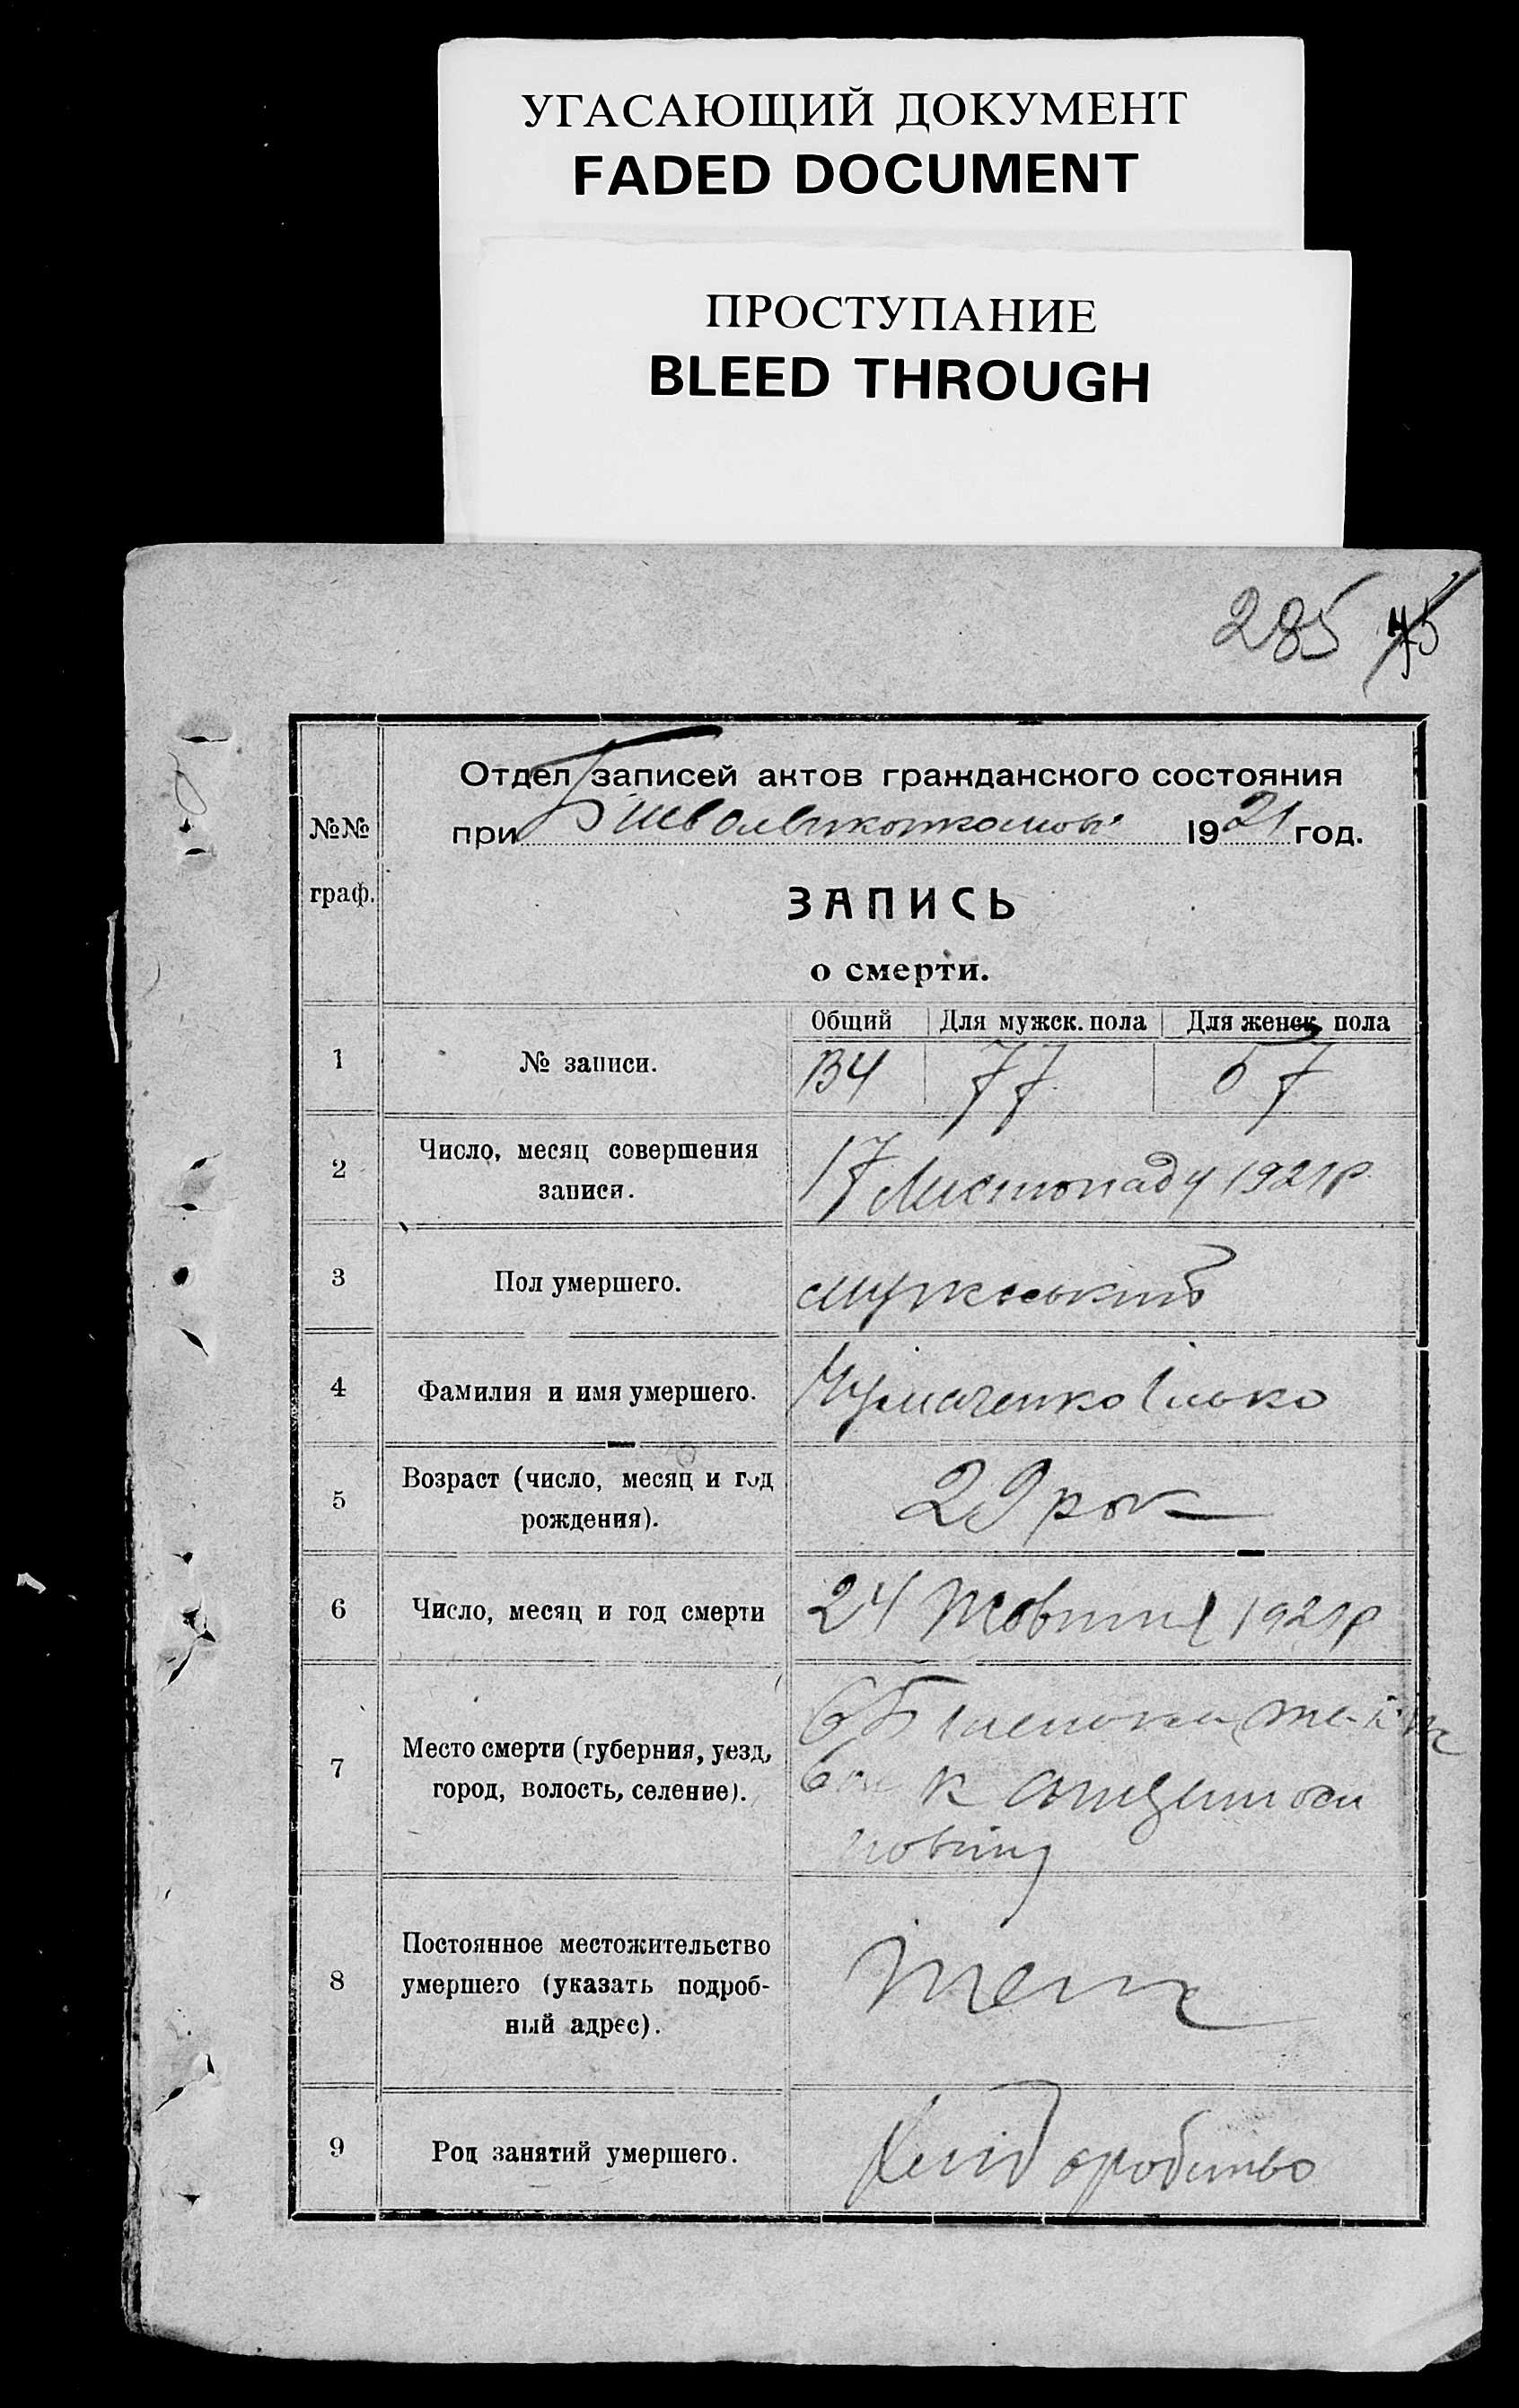 УГАСАЮЩИЙ ДОКУМЕНТ
FADED DOCUMENT
ПРОСТУПАНИЕ
BLEED THROUGH
285
Отдел записей актов гражданского состояния
при 1921 год.
№№
граф.
ЗАПИСЬ
о смерти.
Общий Для мужск. пола Для женск. пола
1 № записи. 134 77 57
2 Число, месяц совершения
записи.
17 Листопаду 1921р.
3 Пол умершего. мужеський
4 Фамилия и имя умершего. Чумаченко Ілько
5 Возраст (число, месяц и год
рождения).
29 рок
6 Число, месяц и год смерти 24 Жовтня 1921р
7 Место смерти (губерния, уезд,
город, волость, селение).
повіту
8 Постоянное местожительство
умершего (указать подроб-
ный адрес).
теж
9 Род занятий умершего. Хліборобство